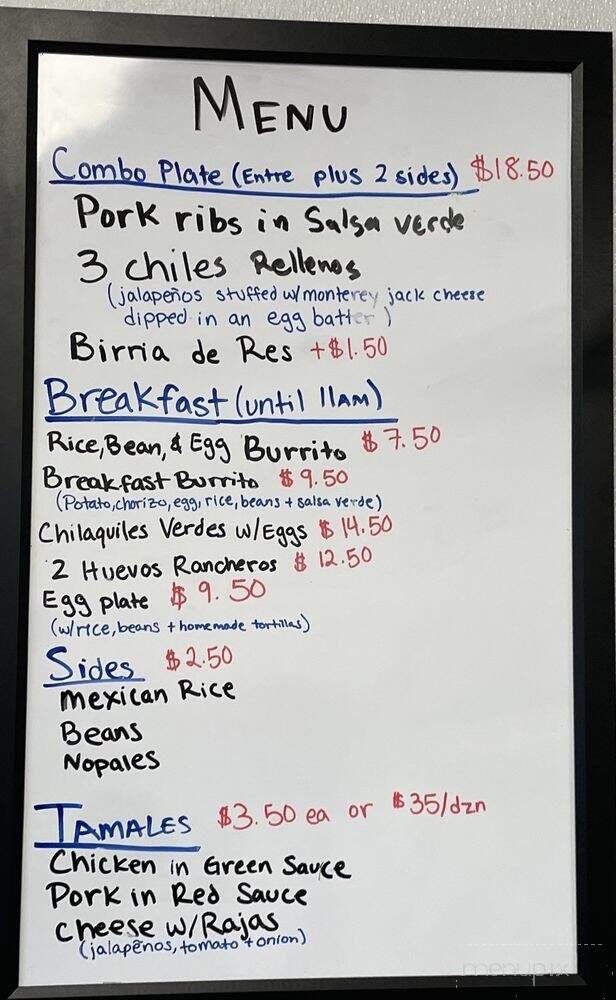 MENU
Combo Plate (Entre plus 2 sides) $18.50
Pork ribs in Salsa verde
3 chiles Rellenos
(jalapeños stuffed w/monterey jack cheese
dipped in an egg batter)
Birria de Res +$1.50
Breakfast (until 11AM)
Rice, Bean, & Egg Burrito $7.50
Breakfast Burrito $9.50
(Potato, chorizo, egg, rice, beans + salsa verde)
Chilaquiles Verdes w/Eggs $14.50
2 Huevos Rancheros $12.50
Egg plate $9.50
(w/rice, beans + homemade tortillas)
Sides $2.50
Mexican Rice
Beans
Nopales
TAMALES $3.50 ea or $35/dzn
Chicken in Green Sauce
Pork in Red Sauce
cheese w/Rajas
(jalapeños, tomato + onion)
menupix